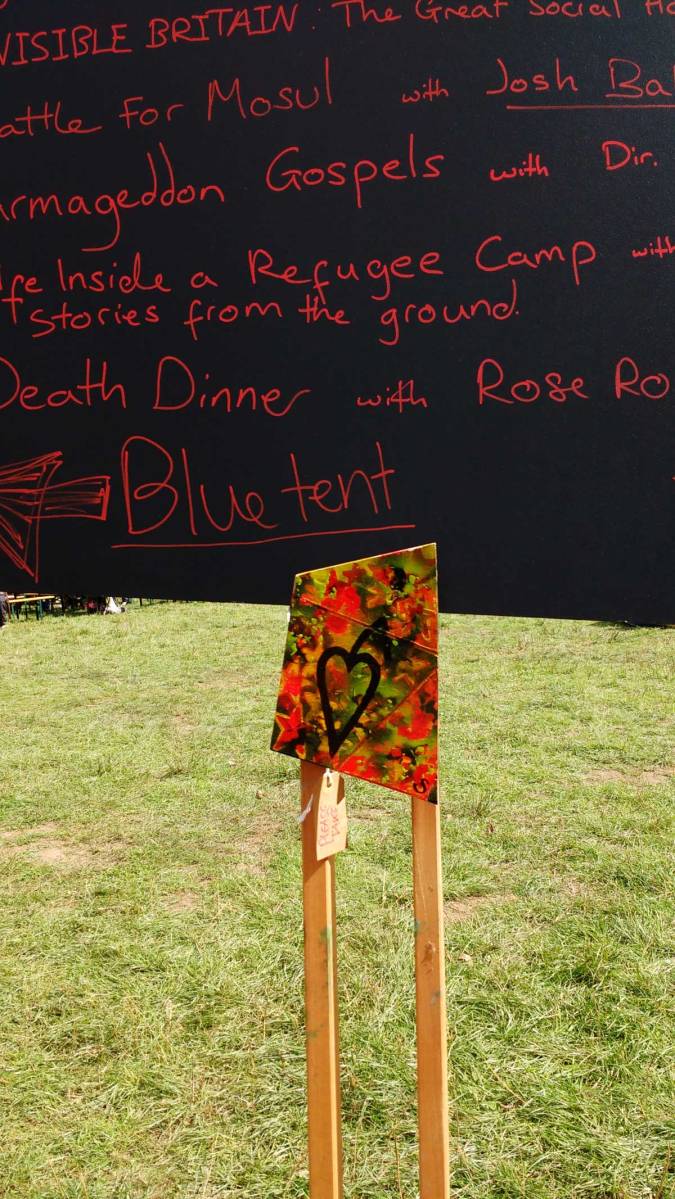 VISIBLE BRITAIN: The Great Social Ho
attle for Mosul with Josh Ba
rmageddon Gospels with Dir.
fe Inside a Refugee Camp with
stories from the ground.
Death Dinner with Rose Ro
Blue tent
PLEASE TAKE
S